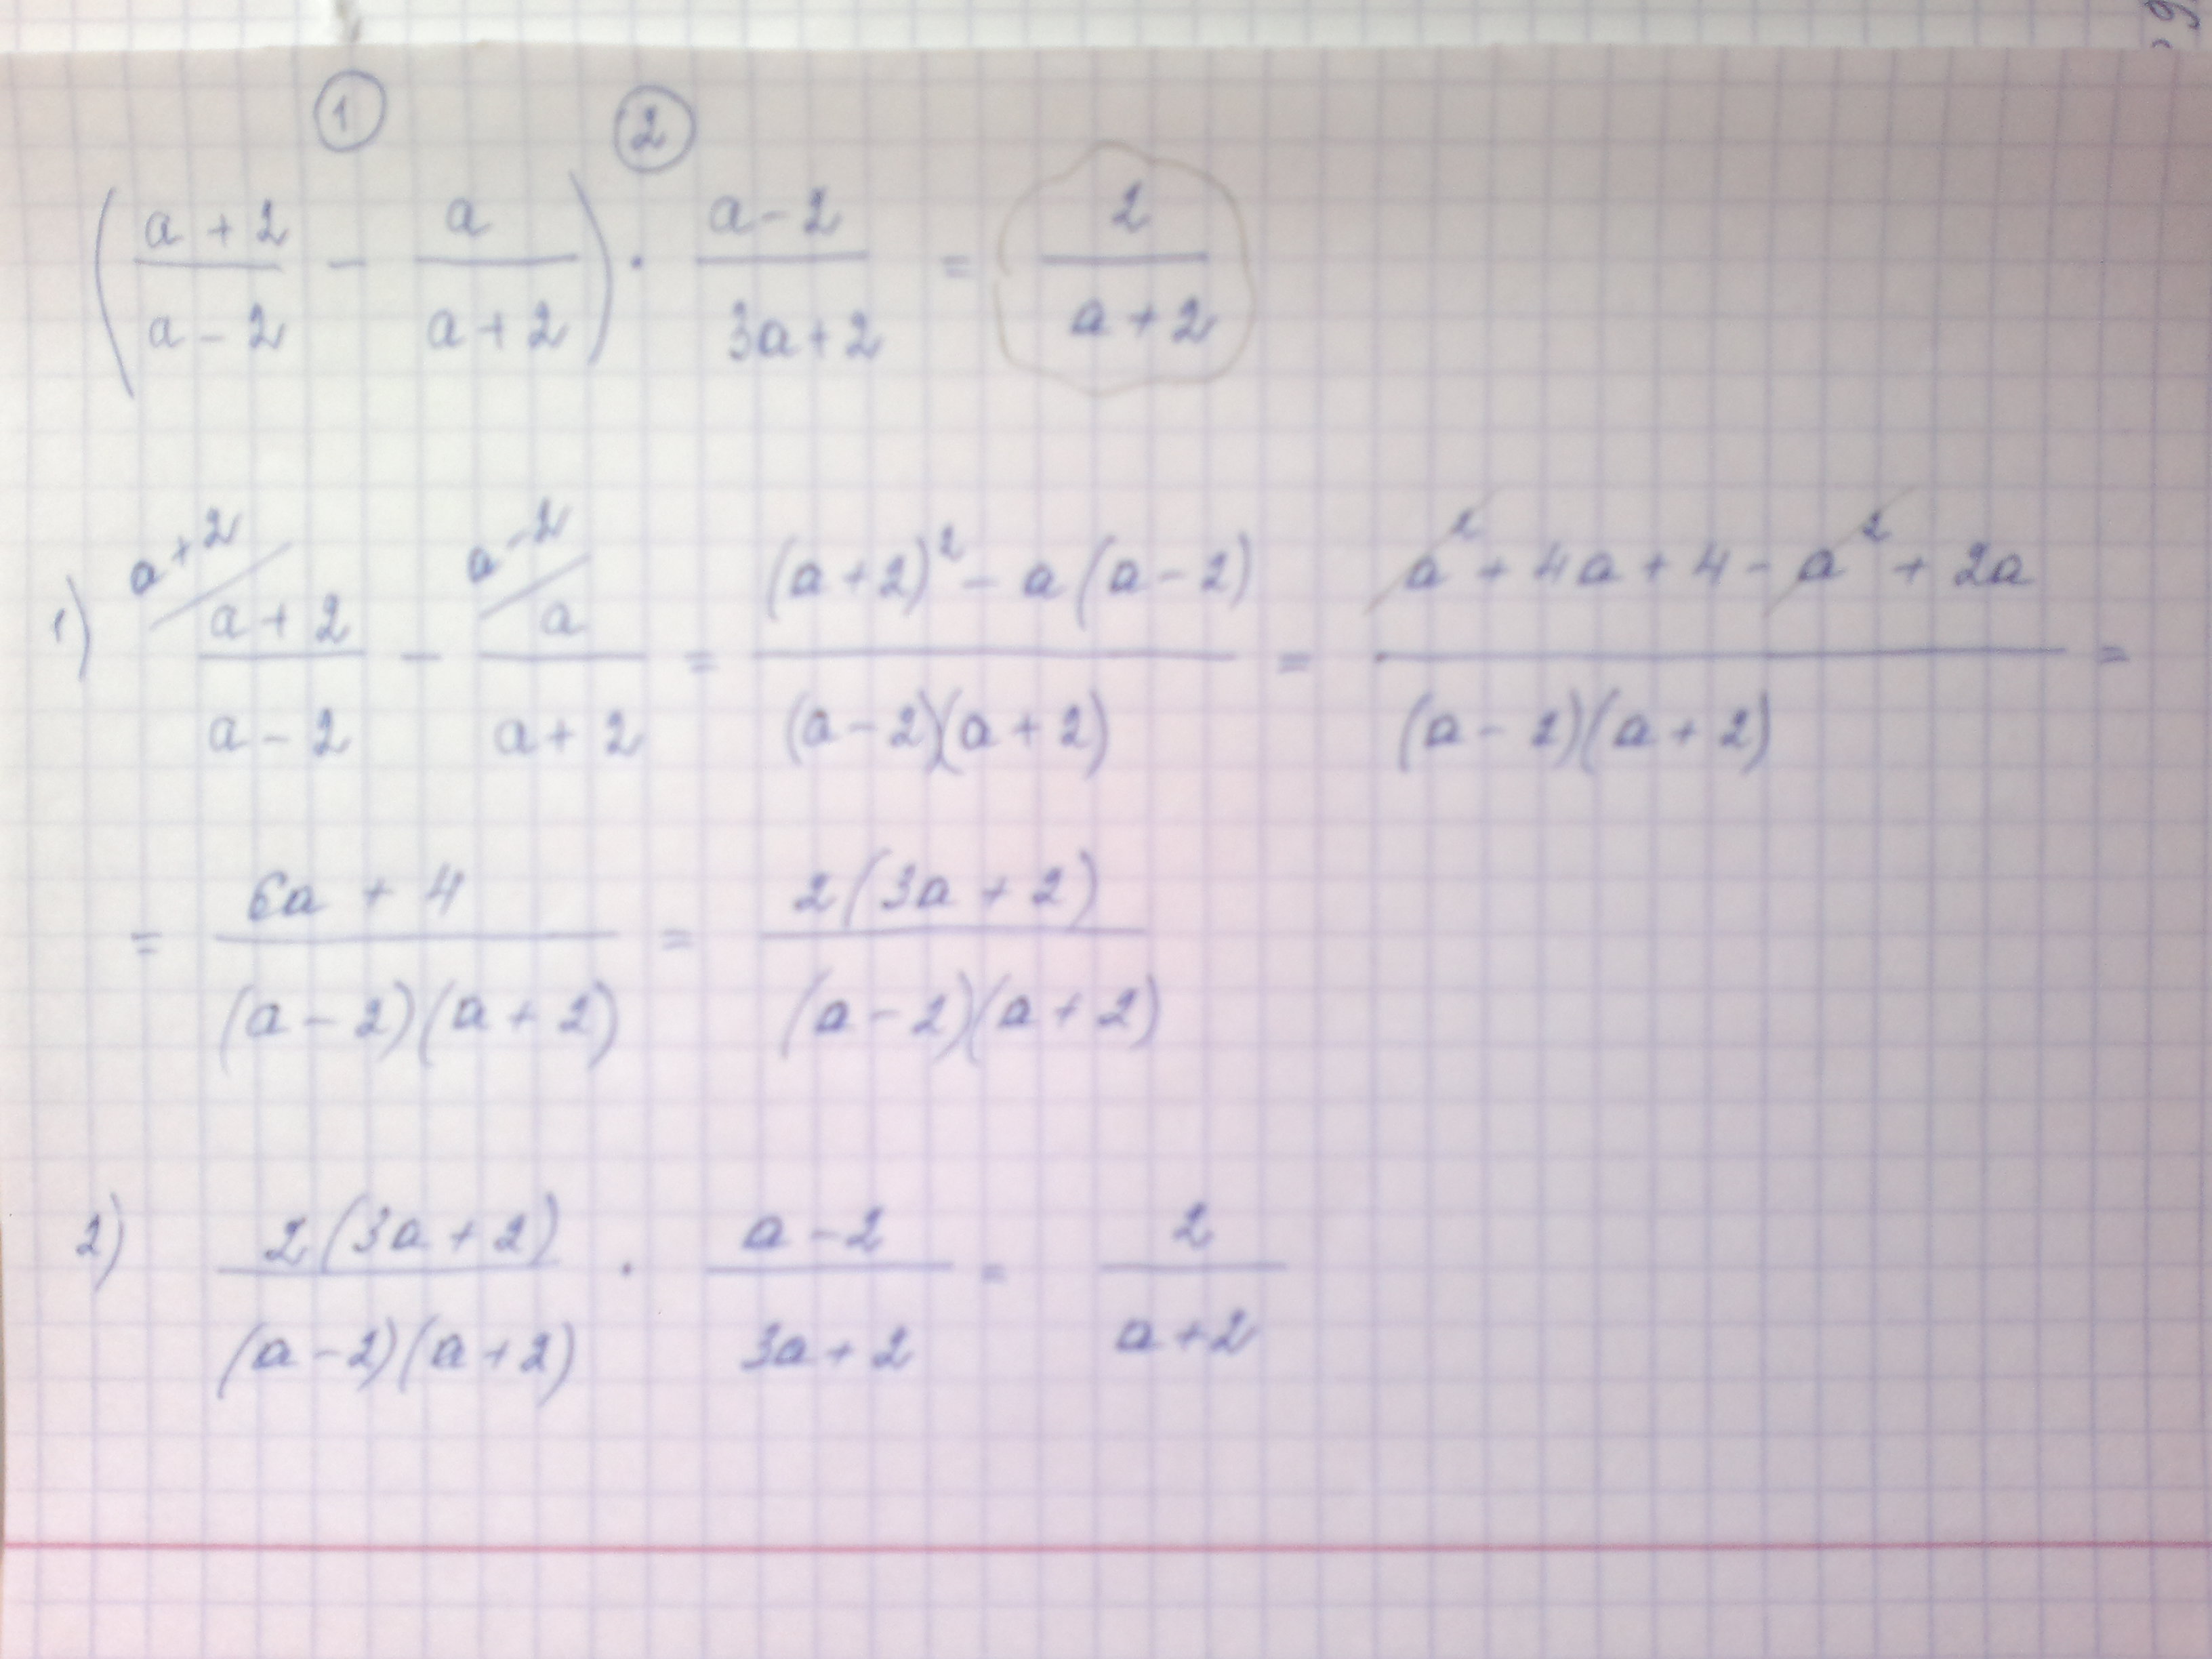 ① ②
(a+2/a-2 - a/a+2) · a-2/3a+2 = 2/a+2
1) a+2/ a+2/a-2 - a-2/ a/a+2 = (a+2)² - a(a-2)/(a-2)(a+2) = a²+4a+4-a²+2a/(a-2)(a+2) =
= 6a+4/(a-2)(a+2) = 2(3a+2)/(a-2)(a+2)
2) 2(3a+2)/(a-2)(a+2) · a-2/3a+2 = 2/a+2